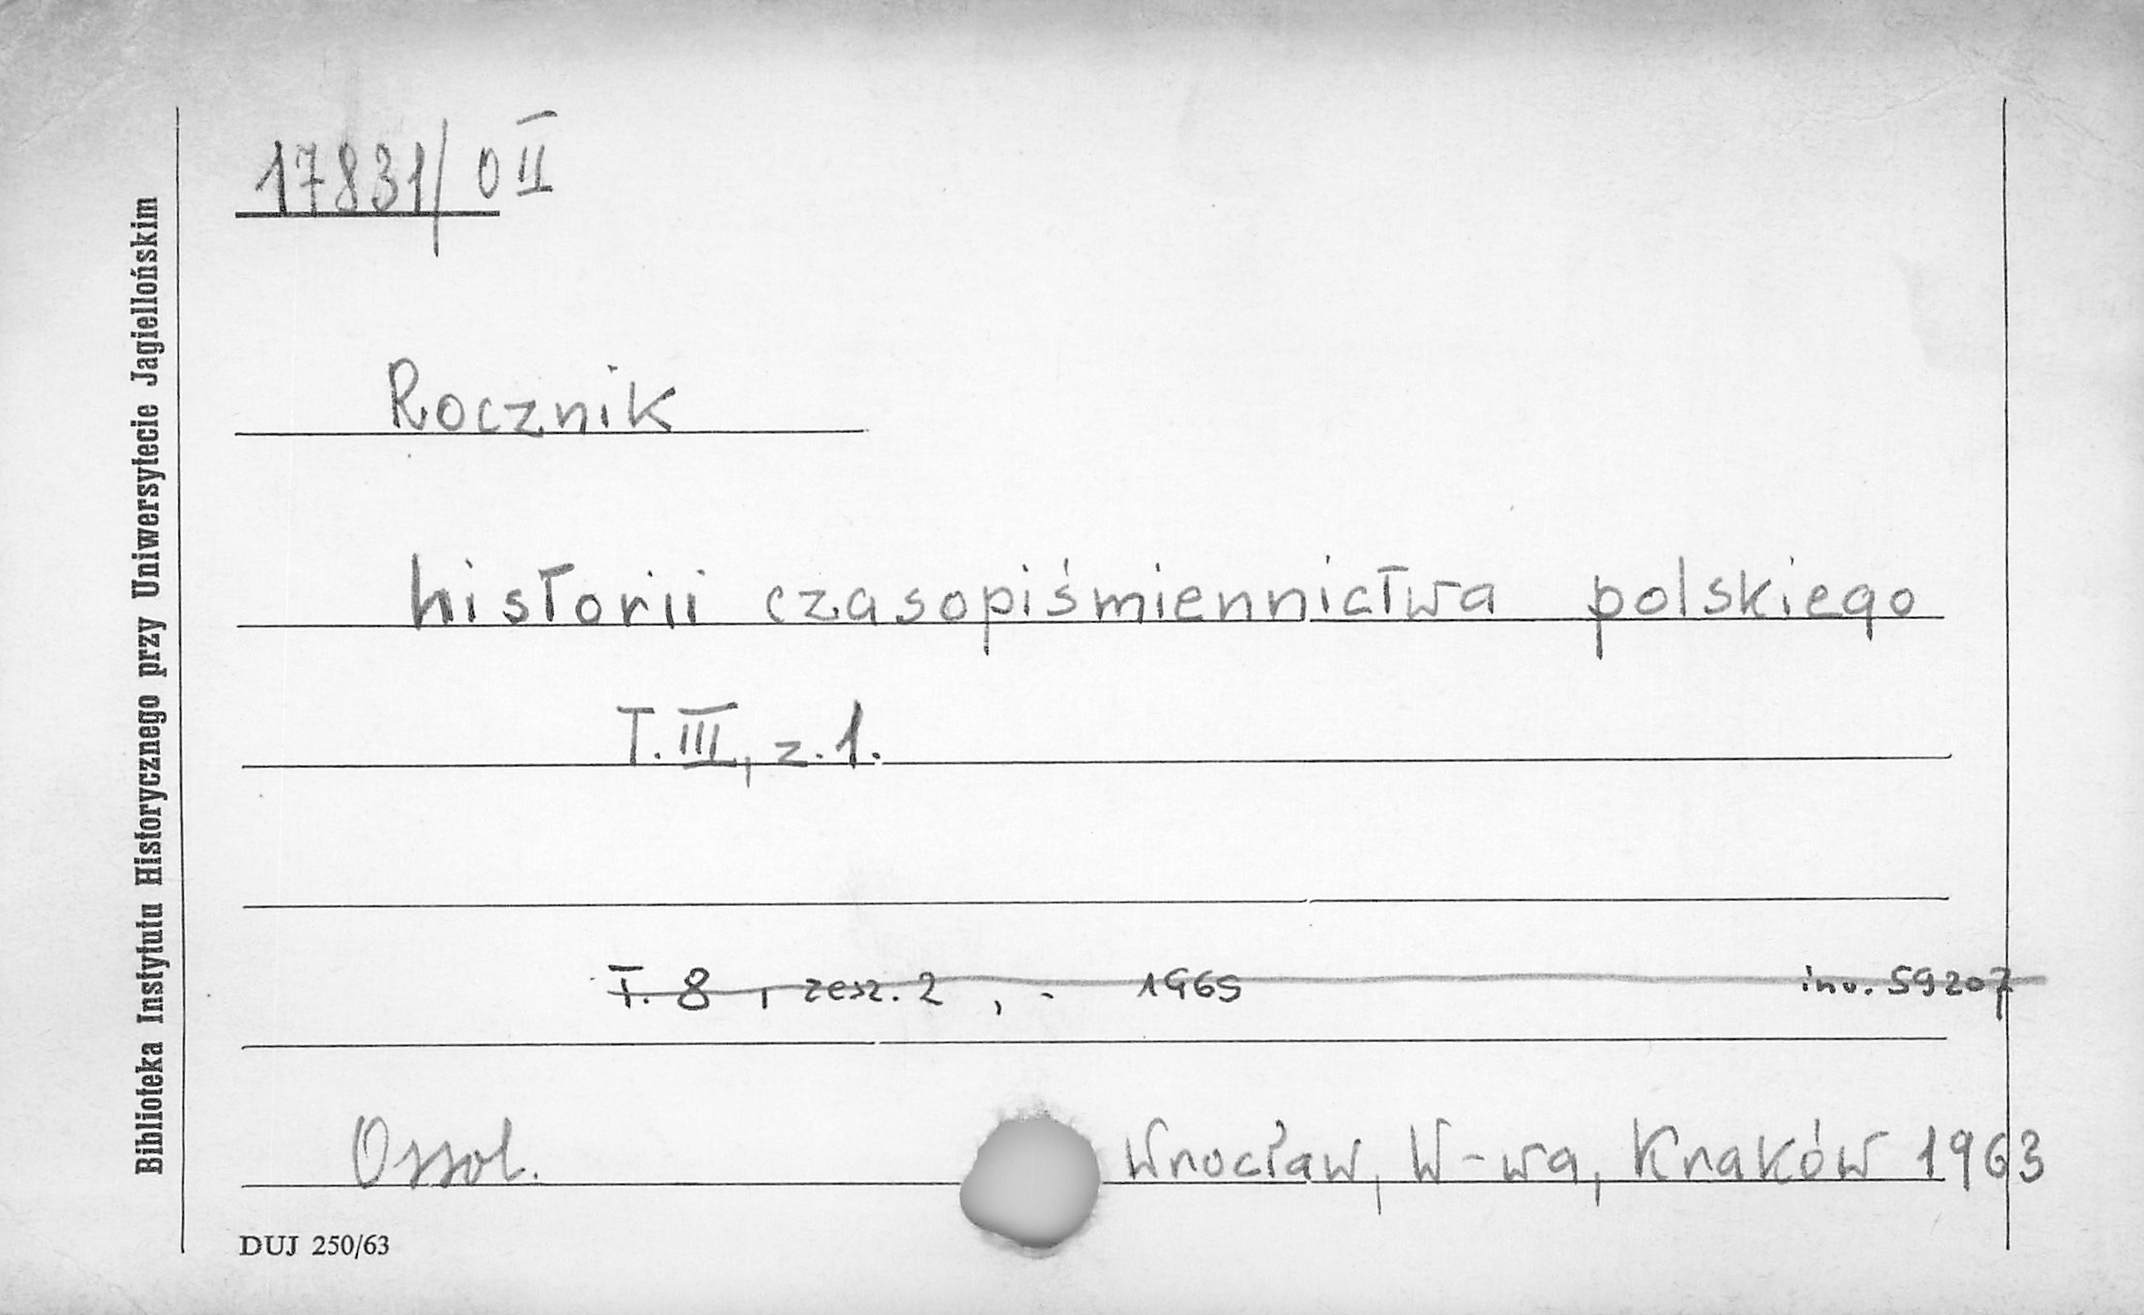 17831/0 II
Rocznik
historii czasopiśmiennictwa polskiego
T. III, z. 1.
T. 8, zesz. 2, - 1969 inv. 59207
Ossol. Wrocław, W-wa, Kraków 1963
DUJ 250/63
Biblioteka Instytutu Historycznego przy Uniwersytecie Jagiellońskim